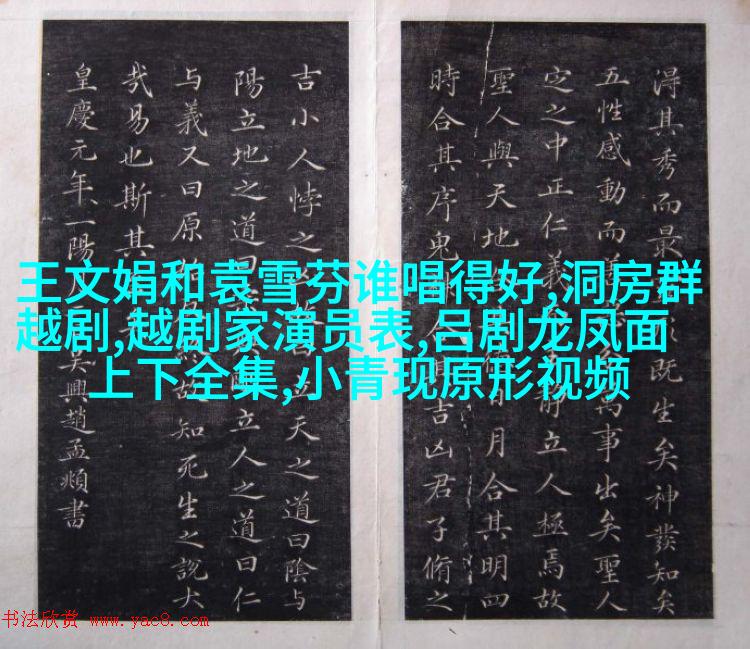 王文娟和袁雪芬谁唱得好,洞房群
越剧,越剧家演员表,吕剧龙凤面
上下全集,小青现原形视频
淂其秀而最既生矣神發知矣
五性感動而善萬事出矣聖人
定之中正仁義立人極焉故
聖人與天地日月合其明四
時合其序鬼吉凶君子脩之
吉小人悖之立天之道曰陰与
陽立地之道曰立人之道曰仁
与義又曰原故知死生之說大
哉易也斯其
皇慶元年一陽月吳興趙孟頫書
书法欣赏 www.yac8.com